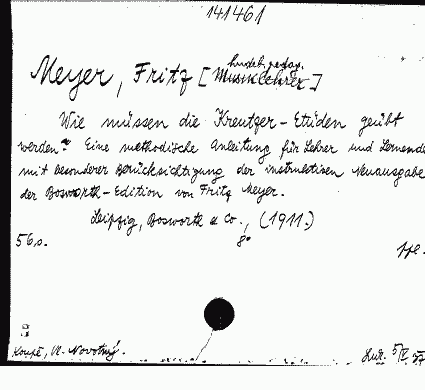 141461
hudeb. pedag.
Meyer, Fritz [Musiklehrer]
Wie müssen die Kreutzer-Etüden geübt
werden? Eine methodische Anleitung für Lehrer und Lernende
mit besonderer Berücksichtigung der instruktiven Neuausgabe
der Bosworth-Edition von Fritz Meyer.
Leipzig, Bosworth & Co., (1911.)
56 s. 8°
Koupě, Vl. Novotný.